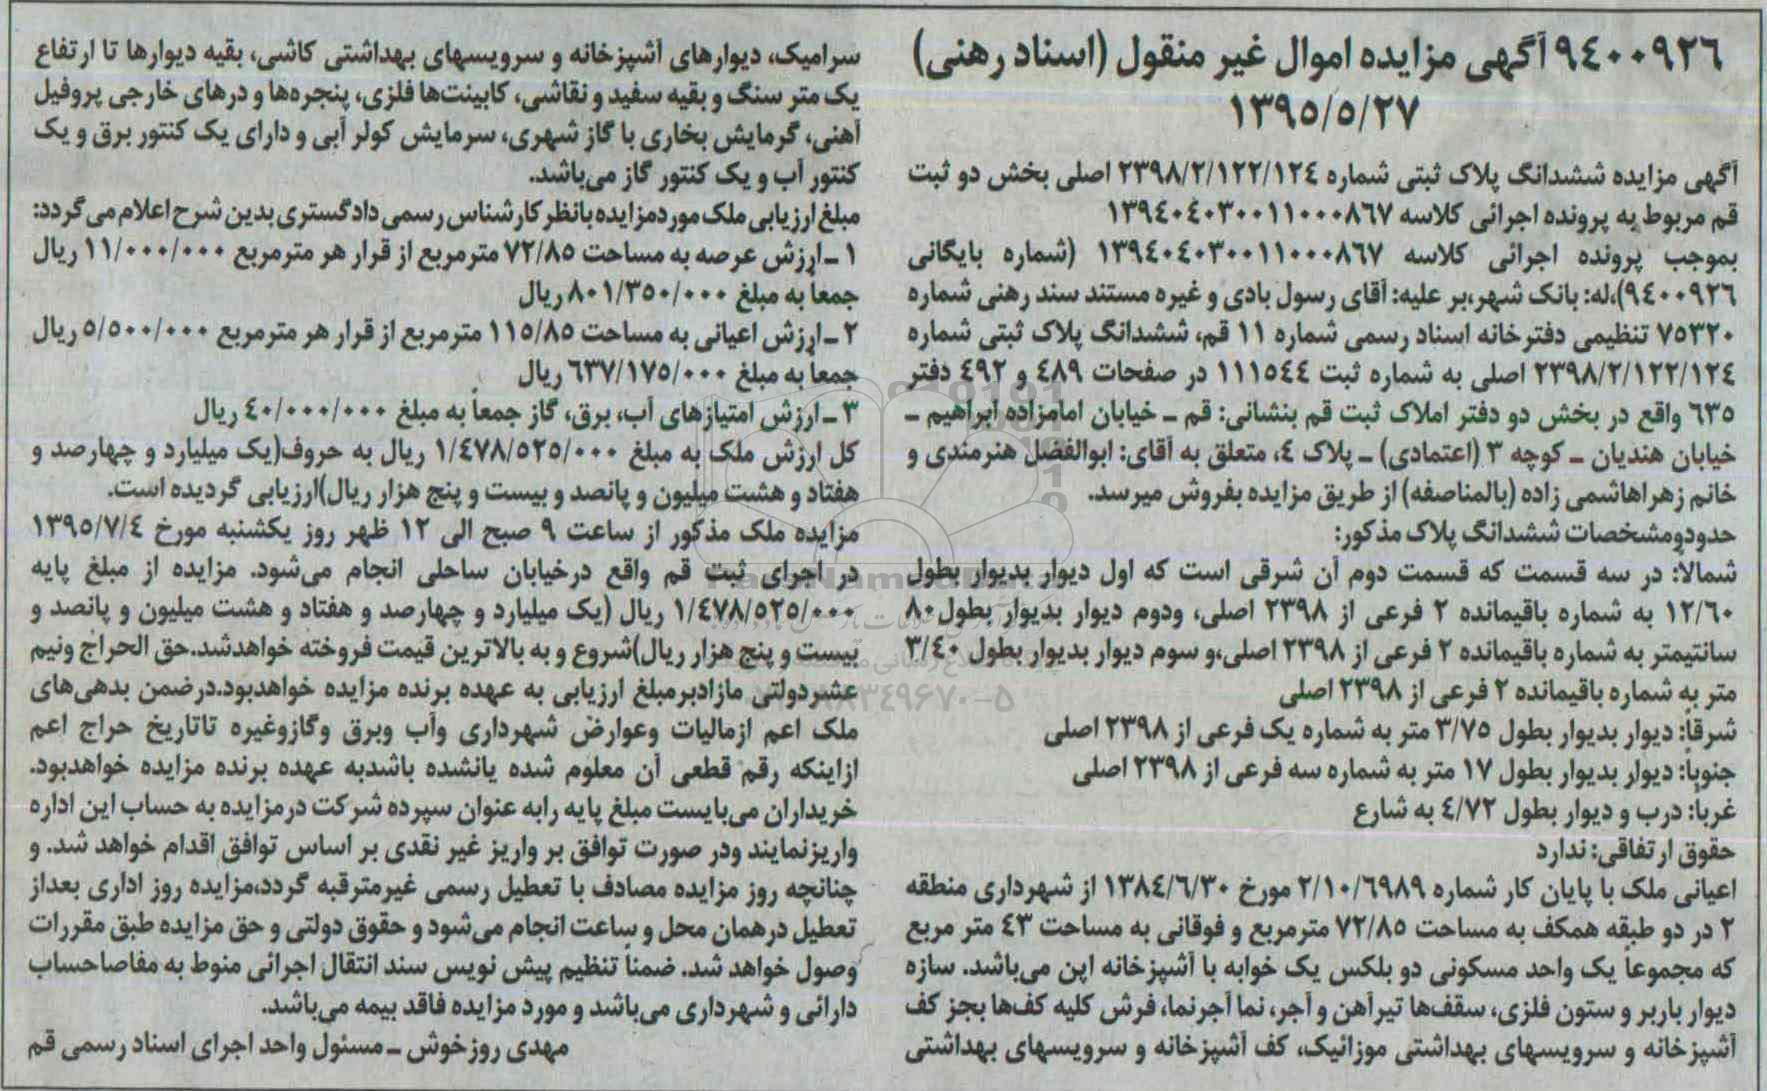 ۹٤۰۰۹۲٦ آگهی مزایده اموال غیر منقول (اسناد رهنی)
۱۳۹۵/۵/۲۷
آگهی مزایده ششدانگ پلاک ثبتی شماره ۲۳۹۸/۲/۱۲۲/۱۲٤ اصلی بخش دو ثبت
قم مربوط به پرونده اجرائی کلاسه ۱۳۹٤۰٤۰۳۰۰۱۱۰۰۰۸٦۷
بموجب پرونده اجرائی کلاسه ۱۳۹٤۰٤۰۳۰۰۱۱۰۰۰۸٦۷ (شماره بایگانی
۹٤۰۰۹۲٦)،له: بانک شهر،بر علیه: آقای رسول بادی و غیره مستند سند رهنی شماره
۷۵۳۲۰ تنظیمی دفترخانه اسناد رسمی شماره ۱۱ قم، ششدانگ پلاک ثبتی شماره
۲۳۹۸/۲/۱۲۲/۱۲٤ اصلی به شماره ثبت ۱۱۱۵٤٤ در صفحات ٤۸۹ و ٤۹۲ دفتر
٦۳۵ واقع در بخش دو دفتر املاک ثبت قم بنشانی: قم ـ خیابان امامزاده ابراهیم ـ
خیابان هندیان ـ کوچه ۳ (اعتمادی) ـ پلاک ٤، متعلق به آقای: ابوالفضل هنرمندی و
خانم زهراهاشمی زاده (بالمناصفه) از طریق مزایده بفروش میرسد.
حدودومشخصات ششدانگ پلاک مذکور:
شمالاً: در سه قسمت که قسمت دوم آن شرقی است که اول دیوار بدیوار بطول
۱۲/٦۰ به شماره باقیمانده ۲ فرعی از ۲۳۹۸ اصلی، ودوم دیوار بدیوار بطول ۸۰
سانتیمتر به شماره باقیمانده ۲ فرعی از ۲۳۹۸ اصلی،و سوم دیوار بدیوار بطول ۳/٤۰
متر به شماره باقیمانده ۲ فرعی از ۲۳۹۸ اصلی
شرقاً: دیوار بدیوار بطول ۳/۷۵ متر به شماره یک فرعی از ۲۳۹۸ اصلی
جنوباً: دیوار بدیوار بطول ۱۷ متر به شماره سه فرعی از ۲۳۹۸ اصلی
غرباً: درب و دیوار بطول ٤/۷۲ به شارع
حقوق ارتفاقی: ندارد
اعیانی ملک با پایان کار شماره ۲/۱۰/٦۹۸۹ مورخ ۱۳۸٤/٦/۳۰ از شهرداری منطقه
۲ در دو طبقه همکف به مساحت ۷۲/۸۵ مترمربع و فوقانی به مساحت ٤۳ متر مربع
که مجموعاً یک واحد مسکونی دو بلکس یک خوابه با آشپزخانه اپن می‌باشد. سازه
دیوار باربر و ستون فلزی، سقف‌ها تیرآهن و آجر، نما آجرنما، فرش کلیه کف‌ها بجز کف
آشپزخانه و سرویسهای بهداشتی موزائیک، کف آشپزخانه و سرویسهای بهداشتی
سرامیک، دیوارهای آشپزخانه و سرویسهای بهداشتی کاشی، بقیه دیوارها تا ارتفاع
یک متر سنگ و بقیه سفید و نقاشی، کابینت‌ها فلزی، پنجره‌ها و درهای خارجی پروفیل
آهنی، گرمایش بخاری با گاز شهری، سرمایش کولر آبی و دارای یک کنتور برق و یک
کنتور آب و یک کنتور گاز می‌باشد.
مبلغ ارزیابی ملک موردمزایده بانظر کارشناس رسمی دادگستری بدین شرح اعلام می‌گردد:
۱ ـ ارزش عرصه به مساحت ۷۲/۸۵ مترمربع از قرار هر مترمربع ۱۱/۰۰۰/۰۰۰ ریال
جمعاً به مبلغ ۸۰۱/۳۵۰/۰۰۰ ریال
۲ ـ ارزش اعیانی به مساحت ۱۱۵/۸۵ مترمربع از قرار هر مترمربع ۵/۵۰۰/۰۰۰ ریال
جمعاً به مبلغ ٦۳۷/۱۷۵/۰۰۰ ریال
۳ ـ ارزش امتیازهای آب، برق، گاز جمعاً به مبلغ ٤۰/۰۰۰/۰۰۰ ریال
کل ارزش ملک به مبلغ ۱/٤۷۸/۵۲۵/۰۰۰ ریال به حروف(یک میلیارد و چهارصد و
هفتاد و هشت میلیون و پانصد و بیست و پنج هزار ریال)ارزیابی گردیده است.
مزایده ملک مذکور از ساعت ۹ صبح الی ۱۲ ظهر روز یکشنبه مورخ ۱۳۹۵/۷/٤
در اجرای ثبت قم واقع درخیابان ساحلی انجام می‌شود. مزایده از مبلغ پایه
۱/٤۷۸/۵۲۵/۰۰۰ ریال (یک میلیارد و چهارصد و هفتاد و هشت میلیون و پانصد و
بیست و پنج هزار ریال)شروع و به بالاترین قیمت فروخته خواهدشد.حق الحراج ونیم
عشردولتی مازادبرمبلغ ارزیابی به عهده برنده مزایده خواهدبود.درضمن بدهی‌های
ملک اعم ازمالیات وعوارض شهرداری وآب وبرق وگازوغیره تاتاریخ حراج اعم
ازاینکه رقم قطعی آن معلوم شده یانشده باشدبه عهده برنده مزایده خواهدبود.
خریداران می‌بایست مبلغ پایه رابه عنوان سپرده شرکت درمزایده به حساب این اداره
واریزنمایند ودر صورت توافق بر واریز غیر نقدی بر اساس توافق اقدام خواهد شد. و
چنانچه روز مزایده مصادف با تعطیل رسمی غیرمترقبه گردد،مزایده روز اداری بعداز
تعطیل درهمان محل و ساعت انجام می‌شود و حقوق دولتی و حق مزایده طبق مقررات
وصول خواهد شد. ضمناً تنظیم پیش نویس سند انتقال اجرائی منوط به مفاصاحساب
دارائی و شهرداری می‌باشد و مورد مزایده فاقد بیمه می‌باشد.
مهدی روزخوش ـ مسئول واحد اجرای اسناد رسمی قم